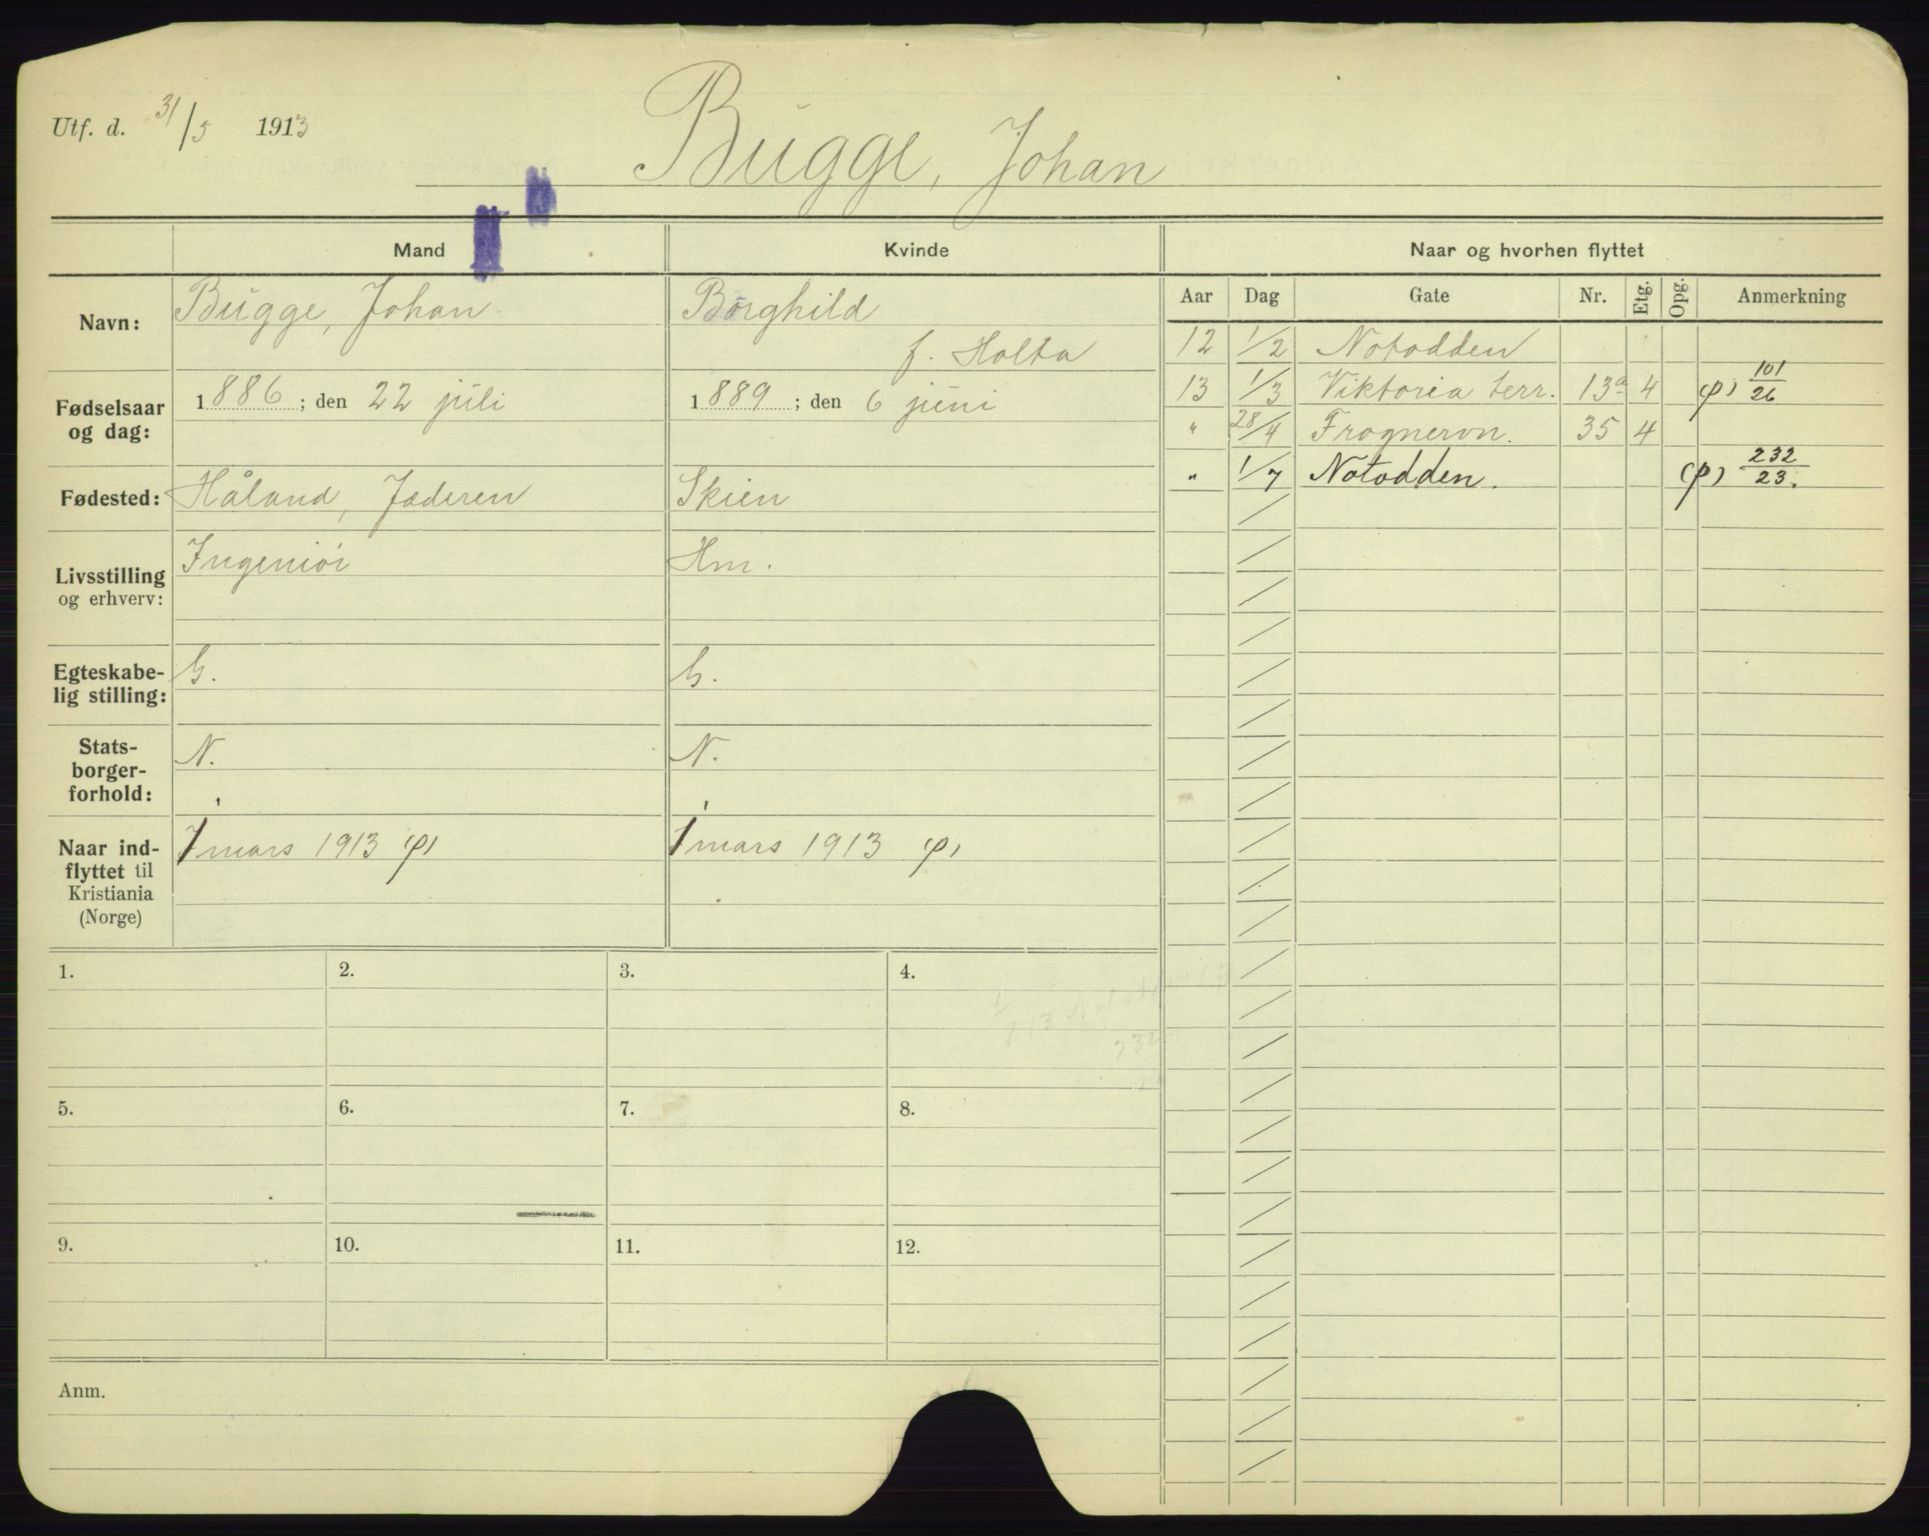 Utf. d. 31/5 1913
Bugge, Johan
Mand Kvinde Naar og hvorhen flyttet
Aar Dag Gate Nr. Etg. Opg. Anmerkning
Navn: Bugge, Johan. Borghild
f. Holta
Fødselsaar og dag: 1886; den 22 juli 1889; den 6 juni
Fødested: Håland, Jæderen Skien
Livsstilling og erhverv: Ingeniør Hm.
Egteskabe-
lig stilling: G. G.
Stats-
borger-
forhold: N. N.
Naar ind-
flyttet til
Kristiania
(Norge) 1 mars 1913 (p) 1 mars 1913 (p)
12 1/2 Notodden
13 1/3 Viktoria terr. 13a 4 (p) 101/26
" 28/4 Frognervn. 35 4
" 1/7 Notodden. (p) 232/23.
1. 2. 3. 4.
5. 6. 7. 8.
9. 10. 11. 12.
Anm.